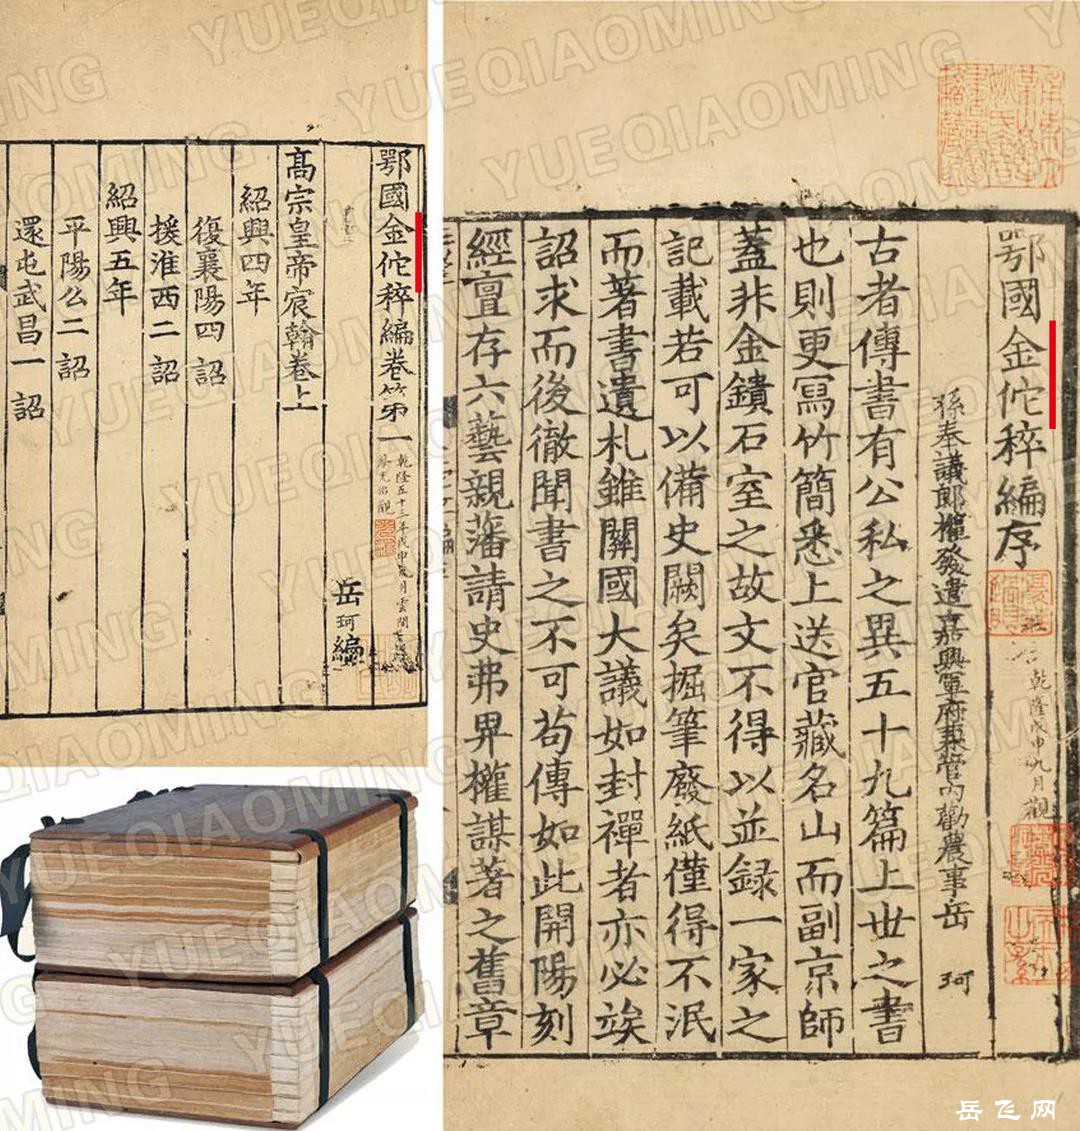 鄂國金佗稡編序
乾隆戊申九月觀
孫奉議郎權發遣嘉興軍府兼管內勸農事岳 珂
古者傳書有公私之異五十九篇上世之書
也則更寫竹簡悉上送官藏名山而副京師
蓋非金鐀石室之故文不得以並録一家之
記載若可以備史闕矣掘筆廢紙僅得不泯
而著書遺札雖關國大議如封禪者亦必竢
詔求而後徹聞書之不可苟傳如此開陽刻
經亶存六藝親藩請史弗畀權謀著之舊章
鄂國金佗稡編卷第一
乾隆五十三年戊申九月雲間
蔡光治觀
岳珂編
高宗皇帝宸翰卷上
紹興四年
復襄陽四詔
援淮西二詔
紹興五年
平陽公二詔
還屯武昌一詔
岳飞网
YUEQIAOMING